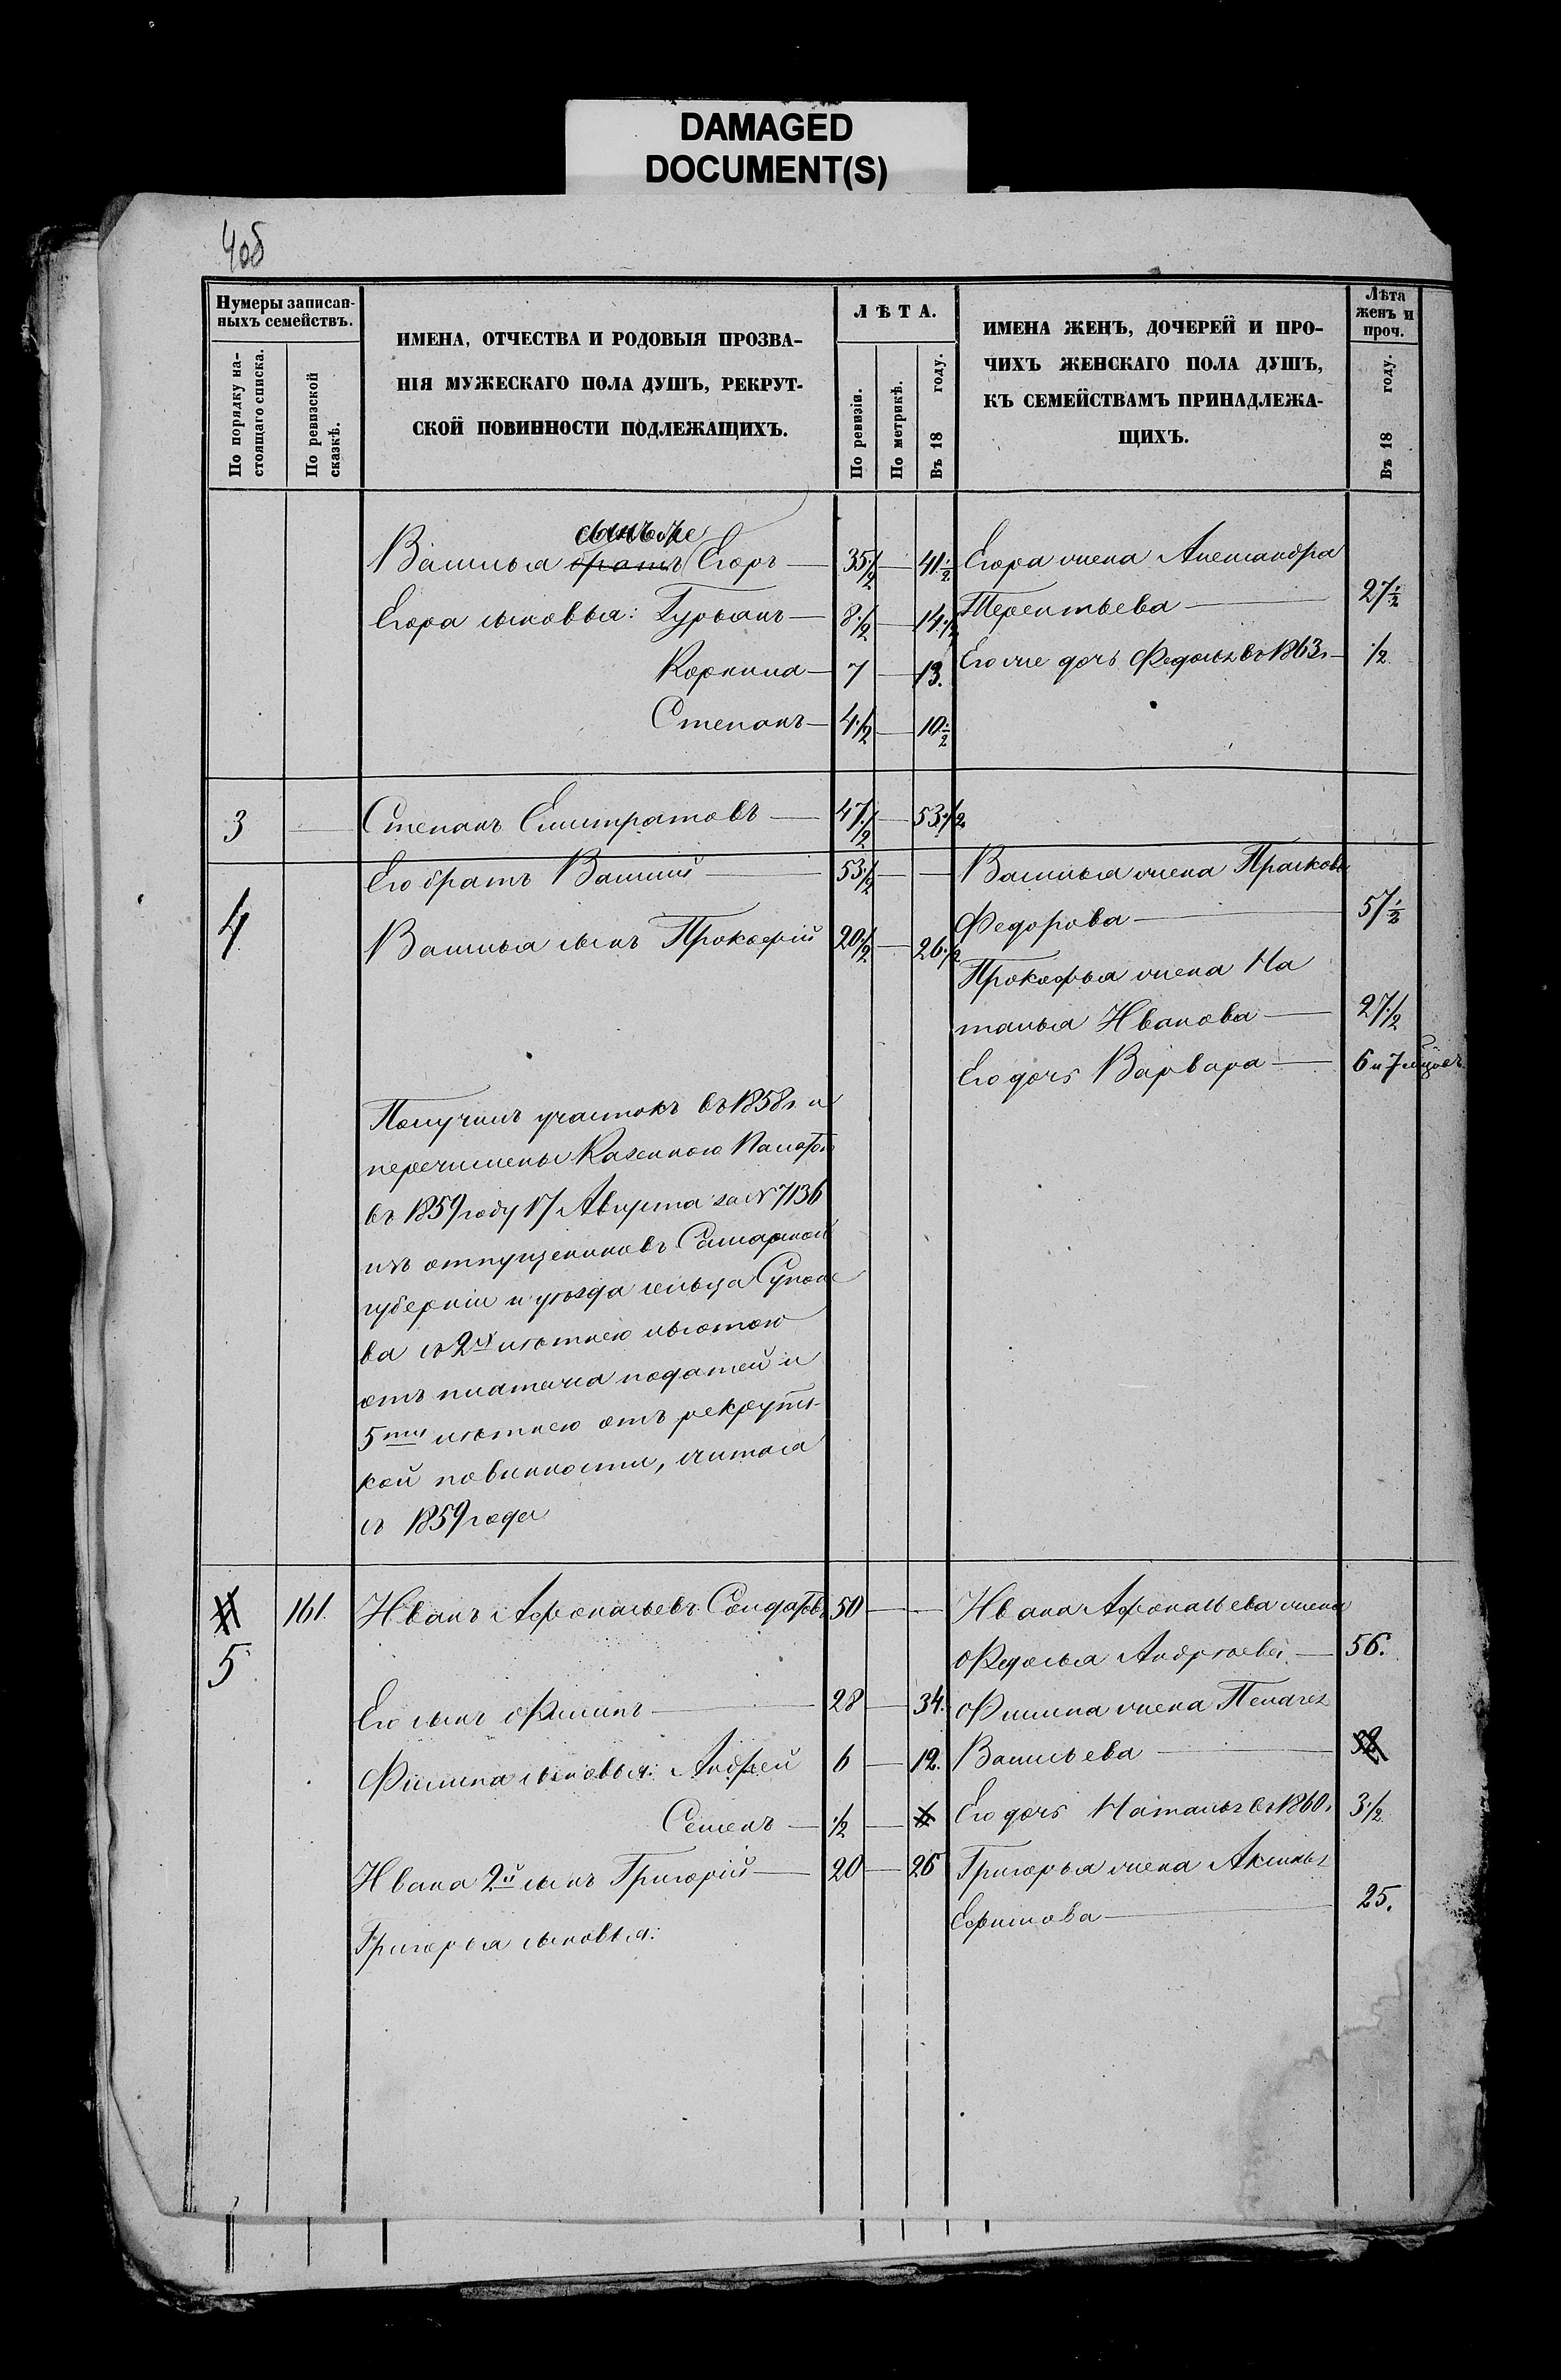 DAMAGED
DOCUMENT(S)
408
Нумеры записан-
ныхъ семействъ.
По порядку на-
стоящаго списка.
По ревизской
сказкѣ.
ИМЕНА, ОТЧЕСТВА И РОДОВЫЯ ПРОЗВА-
НІЯ МУЖЕСКАГО ПОЛА ДУШЪ, РЕКРУТ-
СКОЙ ПОВИННОСТИ ПОДЛЕЖАЩИХЪ.
ЛѢТА.
По ревизіи.
По метрикѣ.
Въ 18 году.
ИМЕНА ЖЕНЪ, ДОЧЕРЕЙ И ПРО-
ЧИХЪ ЖЕНСКАГО ПОЛА ДУШЪ,
КЪ СЕМЕЙСТВАМЪ ПРИНАДЛЕЖА-
ЩИХЪ.
Лѣта
женъ и
проч.
Въ 18 году.
сынъ же
Василья братъ Егоръ 35½ 41½ Егора жена Александра
Егора сыновья: Гурьянъ 8½ 14½ Терентьева 27½
Корнила 7 13. Его же дочь Федосья въ 1863 г ½
Степанъ 4½ 10½
3 Степанъ Елистратовъ 47½ 53½
4 Его братъ Василій 53½ Василья жена Прасковья
Федорова 57½
Василья сынъ Прокофій 20½ 26½
Прокофья жена На
талья Иванова 27½
Его дочь Варвара 6 и 7 мѣсяц.
Получилъ участокъ въ 1858 г. и
перечислены Казенною Палатою
въ 1859 году 17 Августа за № 7136
изъ отпущенниковъ Самарской
губерніи и уѣзда сельца
ва съ 2х лѣтнею льготою
отъ платежа податей и
5ти лѣтнею отъ рекрутс-
кой повинности, считая
съ 1859 года
5 161. Иванъ Афонасьевъ Солдатовъ 50 Ивана Афонасьева жена
Федосья Андреева 56.
Его сынъ Филипъ 28 34. Филипа жена Пелагея
Филипа сыновья: Андрей 6 12. Васильева
Семенъ ½ Его дочь Наталья въ 1860 г 3½
Ивана 2й сынъ Григорій 20 26 Григорья жена Аксинья
Ефимова 25.
Григорья сыновья: